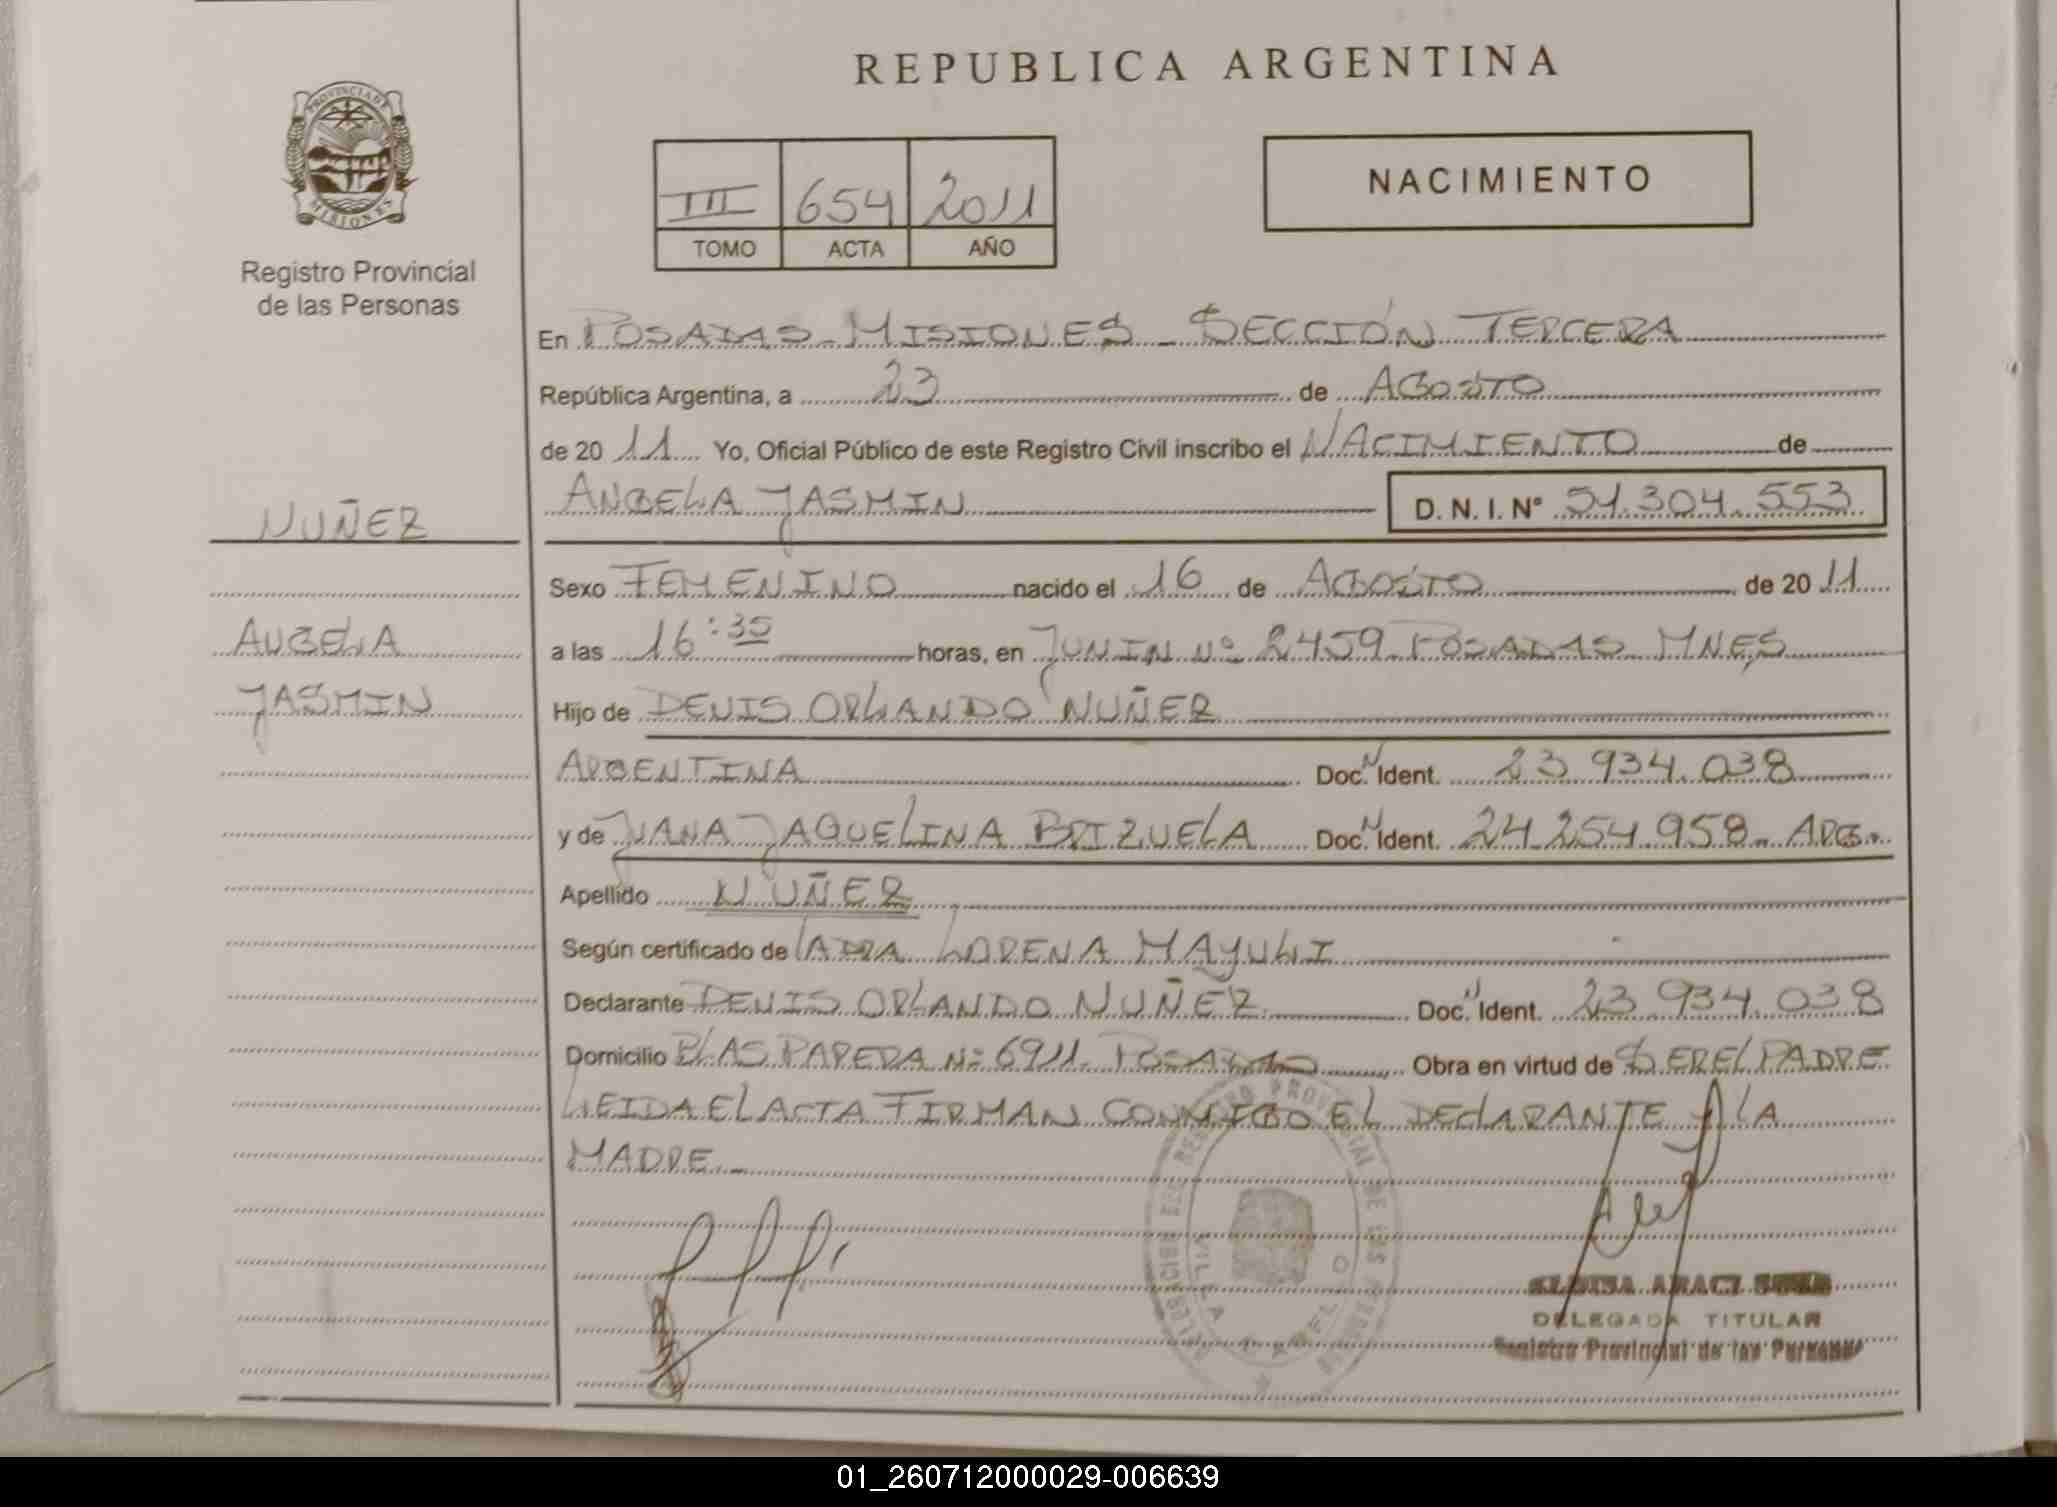 REPUBLICA ARGENTINA
PROVINCIA DE MISIONES
Registro Provincial
de las Personas
III 654 2011
TOMO ACTA AÑO
NACIMIENTO
En POSADAS - MISIONES - SECCIÓN TERCERA
República Argentina, a 23 de AGOSTO
de 20 11 Yo, Oficial Público de este Registro Civil inscribo el NACIMIENTO de
ANGELA JASMIN D. N. I. N° 51.304.553
NUÑEZ
ANGELA
JASMIN
Sexo FEMENINO nacido el 16 de AGOSTO de 20 11
a las 16:35 horas, en JUNIN Nº 2459 POSADAS MNES
Hijo de DENIS ORLANDO NUÑEZ
ARGENTINA Doc. N Ident. 23.934.038
y de JUANA JAQUELINA BRIZUELA Doc. N Ident. 24.254.958 - ARG.
Apellido NUÑEZ
Según certificado de LORENA MAYULI
Declarante DENIS ORLANDO NUÑEZ Doc. N Ident. 23.934.038
Domicilio BLAS PARERA Nº 6911 - POSADAS Obra en virtud de SER EL PADRE
LEIDA EL ACTA FIRMAN CONMIGO EL DECLARANTE Y LA
MADRE -
DELEGADA TITULAR
Registro Provincial de las Personas
01_260712000029-006639